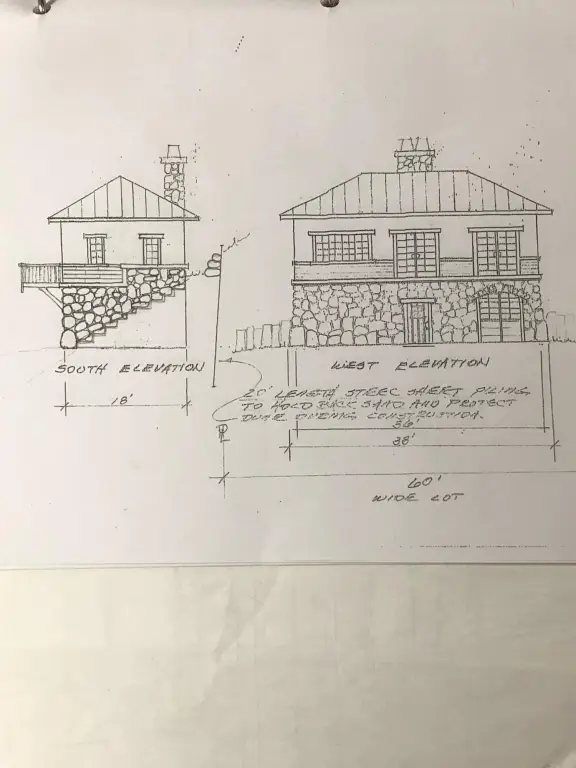 SOUTH ELEVATION
WEST ELEVATION
18'
20' LENGTH STEEL SHEET PILING
TO HOLD BACK SAND AND PROTECT
DUNE DURING CONSTRUCTION.
36'
38'
60'
WIDE LOT